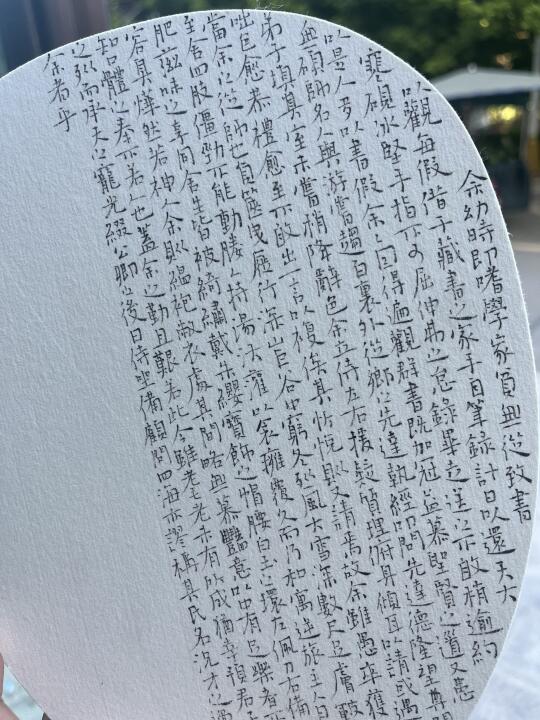 余幼時即嗜學家貧無從致書
以觀每假借于藏書之家手自筆錄計日以還天大
寒硯冰堅手指不可屈伸弗之怠錄畢走送之不敢稍逾約
以是人多以書假余余因得遍觀群書既加冠益慕聖賢之道又患
無碩師名人與游嘗趨百裏外從鄉之先達執經叩問先達德隆望尊
弟子填其室未嘗稍降辭色余立侍左右援疑質理俯身傾耳以請或遇
咄色愈恭禮愈至不敢出一言以復俟其忻悅則又請焉故余雖愚卒獲
當余之從師也負篋曳屣行深山巨谷中窮冬烈風大雪深數尺足膚皸
至舍四肢僵勁不能動媵人持湯沃灌以衾擁覆久而乃和寓逆旅主人日
肥滋味之享同舍生皆被綺繡戴朱纓寶飾之帽腰白玉之環左佩刀右備
容臭燁然若神人余則縕袍敝衣處其間略無慕艷意以中有足樂者
知口體之奉不若人也蓋余之勤且艱若此今雖耄老未有所成猶幸預君子
之列而承天之寵光綴公卿之後日侍坐備顧問四海亦謬稱其氏名況才之過
余者乎